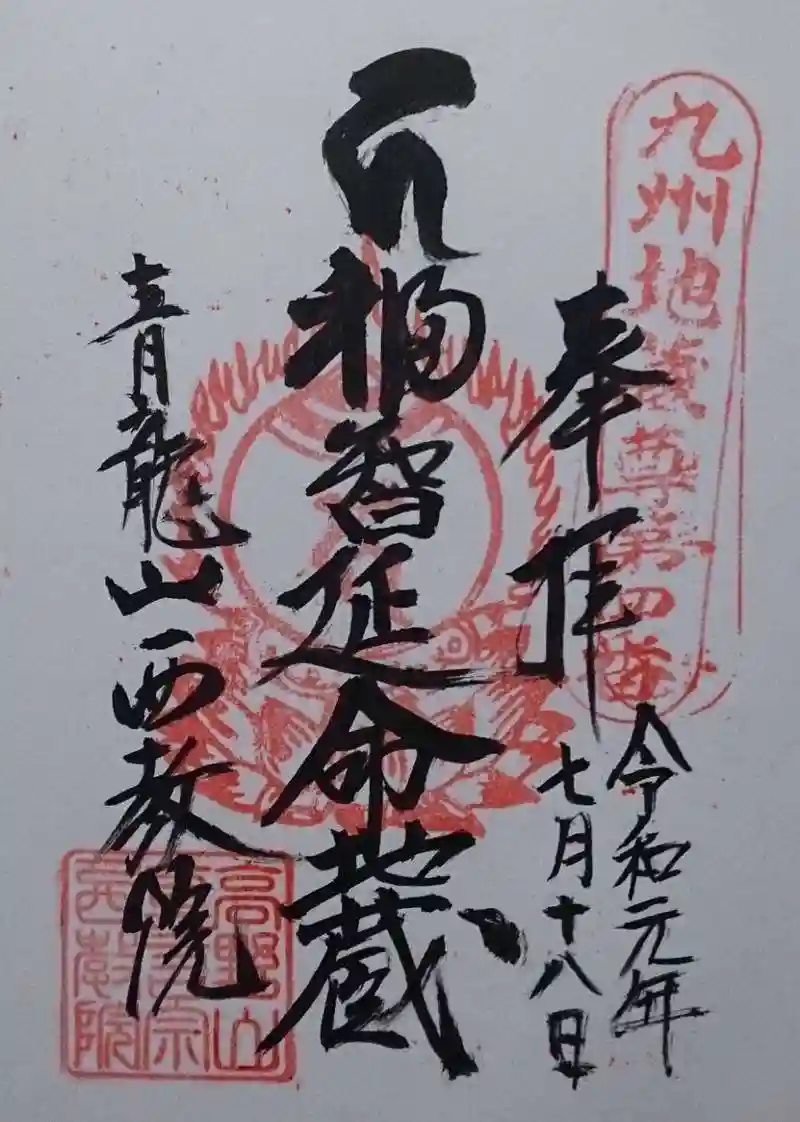 九州地蔵尊第四番
奉拝
令和元年
七月十八日
福智延命地蔵
青龍山西教院
高野山
真言宗
西教院